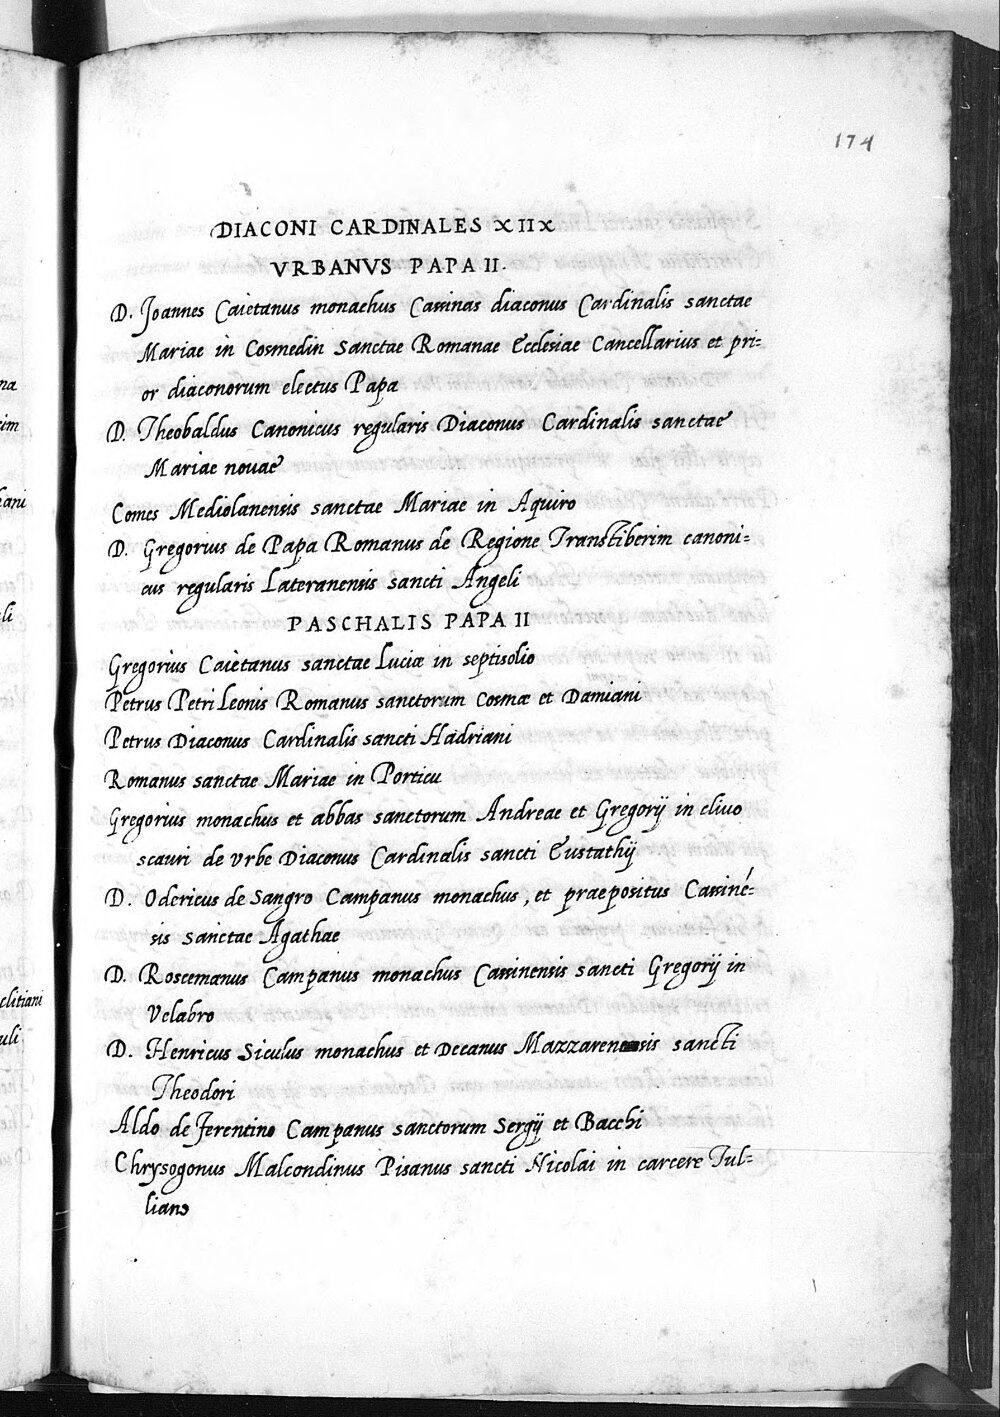 174
DIACONI CARDINALES XIIX
VRBANVS PAPA II.
D. Joannes Caietanus monachus Cassinas diaconus Cardinalis sanctae
Mariae in Cosmedin Sanctae Romanae Ecclesiae Cancellarius et pri=
or diaconorum electus Papa
D. Theobaldus Canonicus regularis Diaconus Cardinalis sanctae
Mariae novae
Comes Mediolanensis sanctae Mariae in Aquiro
D. Gregorius de Papa Romanus de Regione Transtiberim canoni=
cus regularis Lateranensis sancti Angeli
PASCHALIS PAPA II
Gregorius Caietanus sanctae Luciæ in septisolio
Petrus Petri Leonis Romanus sanctorum Cosmæ et Damiani
Petrus Diaconus Cardinalis sancti Hadriani
Romanus sanctae Mariae in Porticu
Gregorius monachus et abbas sanctorum Andreae et Gregorij in clivo
scauri de Vrbe Diaconus Cardinalis sancti Eustathij
D. Odericus de Sangro Campanus monachus, et praepositus Cassiné=
sis sanctae Agathae
D. Roscemanus Campanus monachus Cassinensis sancti Gregorij in
Velabro
D. Henricus Siculus monachus et Decanus sancti
Theodori
Aldo de Ferentino Campanus sanctorum Sergij et Bacchi
Chrysogonus Malcondinus Pisanus sancti Nicolai in carcere Tul=
liano
na
cim
iani
li
clitiani
uli